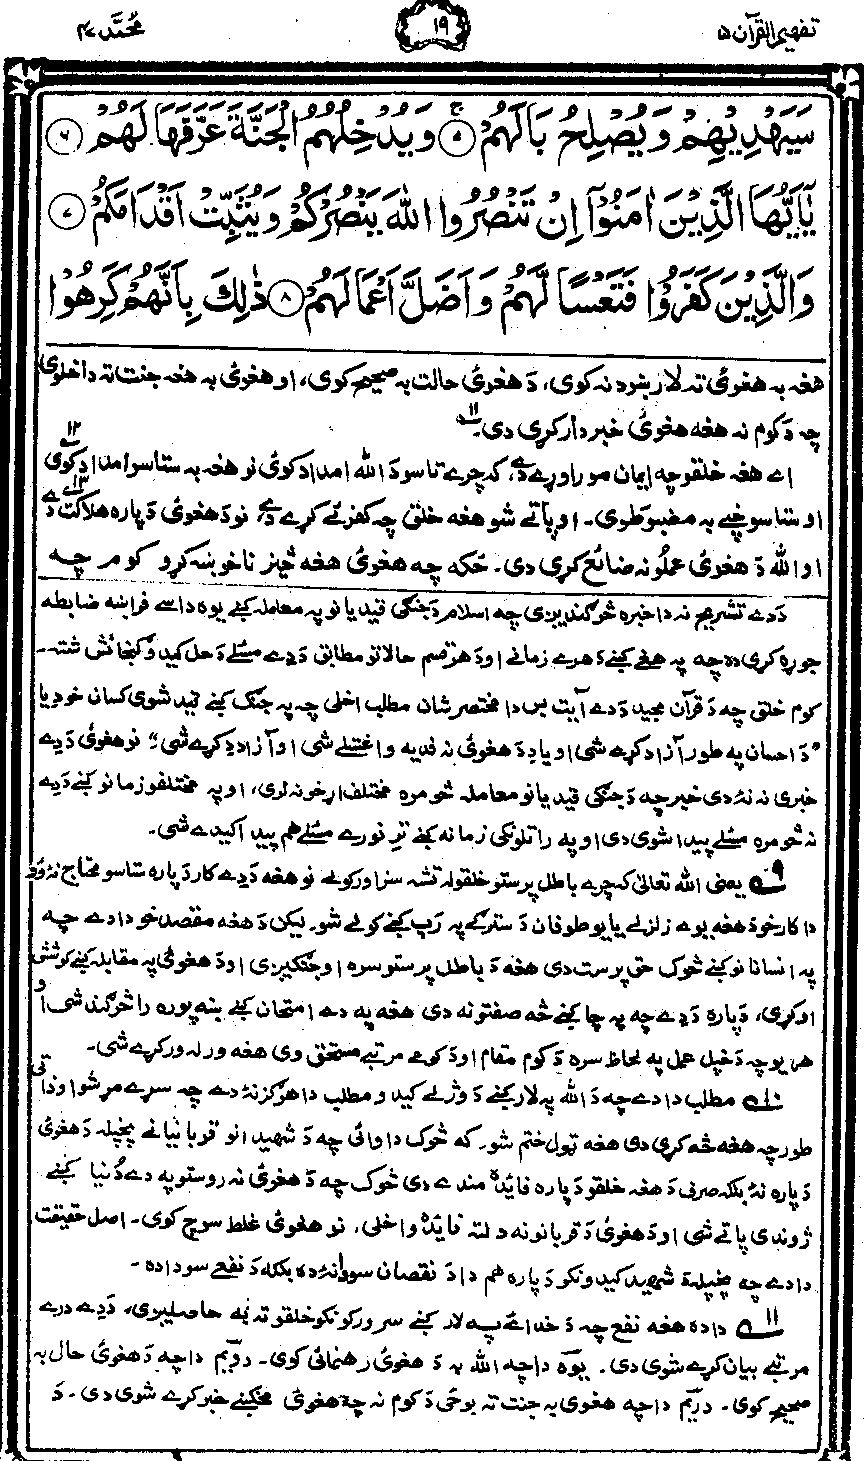 تفهيم القرآن ۵
۱۹
محمّد ۴۷
سَيَهْدِيْهِمْ وَيُصْلِحُ بَالَهُمْ ۚ ۵ وَيُدْخِلُهُمُ الْجَنَّةَ عَرَّفَهَا لَهُمْ ۶
يٰٓاَيُّهَا الَّذِيْنَ اٰمَنُوْٓا اِنْ تَنْصُرُوا اللّٰهَ يَنْصُرْكُمْ وَيُثَبِّتْ اَقْدَامَكُمْ ۷
وَالَّذِيْنَ كَفَرُوْا فَتَعْسًا لَّهُمْ وَاَضَلَّ اَعْمَالَهُمْ ۸ ذٰلِكَ بِاَنَّهُمْ كَرِهُوْا
هغه به هغوئ ته لار ښودنه کوی، دَ هغوئ حالت به صحیح کوی، او هغوئ به هغه جنت ته داخلوی
چه دَ کوم نه هغه هغوئ خبردار کړی دی۔ ۱۱
اے هغه خلقو چه ایمان مو راوړے دے، که چرے تاسو دَ الله امداد کوئ نو هغه به ستاسو امداد کوی ۱۲
او ستاسو خپے به مضبوطوی۔ او پاتے شو هغه خلق چه کفر ئے کړے دے، نو دَ هغوئ دَ پاره هلاکت دے ۱۳
او الله دَ هغوئ عملونه ضائع کړی دی۔ ځکه چه هغوئ هغه څیز ناخوښه کړو کوم چه
دَ دے تشریح نه دا خبره څرګندیږی چه اسلام دَ جنګی قیدیانو په معامله کښے یوه داسے فراخه ضابطه
جوړه کړی ده چه په هغے کښے دَ هرے زمانے او دَ هر قسم حالاتو مطابق دَ دے مسئلے دَ حل کیدو ګنجائش شته۔
کوم خلق چه دَ قرآن مجید دَ دے آیت بس دا مختصر شان مطلب اخلی چه په جنګ کښے قید شوی کسان خو دِ یا
"دَ احسان په طور آزاد کړے شی او یا دِ دَ هغوئ نه فدیه واغستلے شی او آزاد دِ کړے شی"، نو هغوئ دَ دے
خبرے نه نهٔ دی خبر چه دَ جنګی قیدیانو معامله څومره مختلف اړخونه لری، او په مختلفو زمانو کښے دَ دے
نه څومره مسئلے پیدا شوی دی او په راتلونکی زمانه کښے ترِ نورے مسئلے هم پیدا کیدے شی۔
۹ یعنی الله تعالیٰ که چرے باطل پرستو خلقو له تشه سزا ورکولے نو هغه دَ دے کار دَ پاره ستاسو محتاج نهٔ وو
دا کار خو دَ هغه یوے زلزلے یا یو طوفان دَ سترګے په رپ کښے کولے شو۔ لیکن دَ هغه مقصد خو دا دے چه
په انسانانو کښے څوک حق پرست دی هغه دِ باطل پرستو سره او جنګیږی او دَ هغوئ په مقابله کښے کوشش
اوکړی، دَ پاره دَ دے چه په چا کښے څه صفتونه دی هغه په دے امتحان کښے ښه پوره راڅرګند شی او
هر یو چه دَ خپل عمل په لحاظ سره دَ کوم مقام او دَ کومے مرتبے مستحق وی هغه ورله ورکړے شی۔
۱۰ مطلب دا دے چه دَ الله په لار کښے دَ وژلے کیدو مطلب دا هرګز نهٔ دے چه سرے مړ شو او ذاتی
طور چه هغه څه کړی دی هغه ټول ختم شو۔ که څوک دا وائی چه دَ شهیدانو قربانیانے پخپله دَ هغوئ
دَ پاره نهٔ بلکه صرف دَ هغه خلقو دَ پاره فائده مندے دی څوک چه دَ هغوئ نه روستو په دے دُنیا کښے
ژوندی پاتے شی او دَ هغوئ دَ قربانو نه دلته فائده واخلی، نو هغوئ غلط سوچ کوی۔ اصل حقیقت
دا دے چه پخپله دَ شهید کیدونکو دَ پاره هم دا دَ نقصان سودا نهٔ ده بلکه دَ نفعے سودا ده۔
۱۱ دا ده هغه نفع چه دَ خدائے په لار کښے سر ورکونکو خلقو ته به حاصلیږی، دَ دے درے
مرتبے بیان کړے شوی دی۔ یوه دا چه الله به دَ هغوئ رهنمائی کوی۔ دویم دا چه دَ هغوئ حال به
صحیح کوی۔ دریم دا چه هغوئ به جنت ته بوځی دَ کوم نه چه هغوئ مخکښے خبر کړے شوی دی۔ دَ